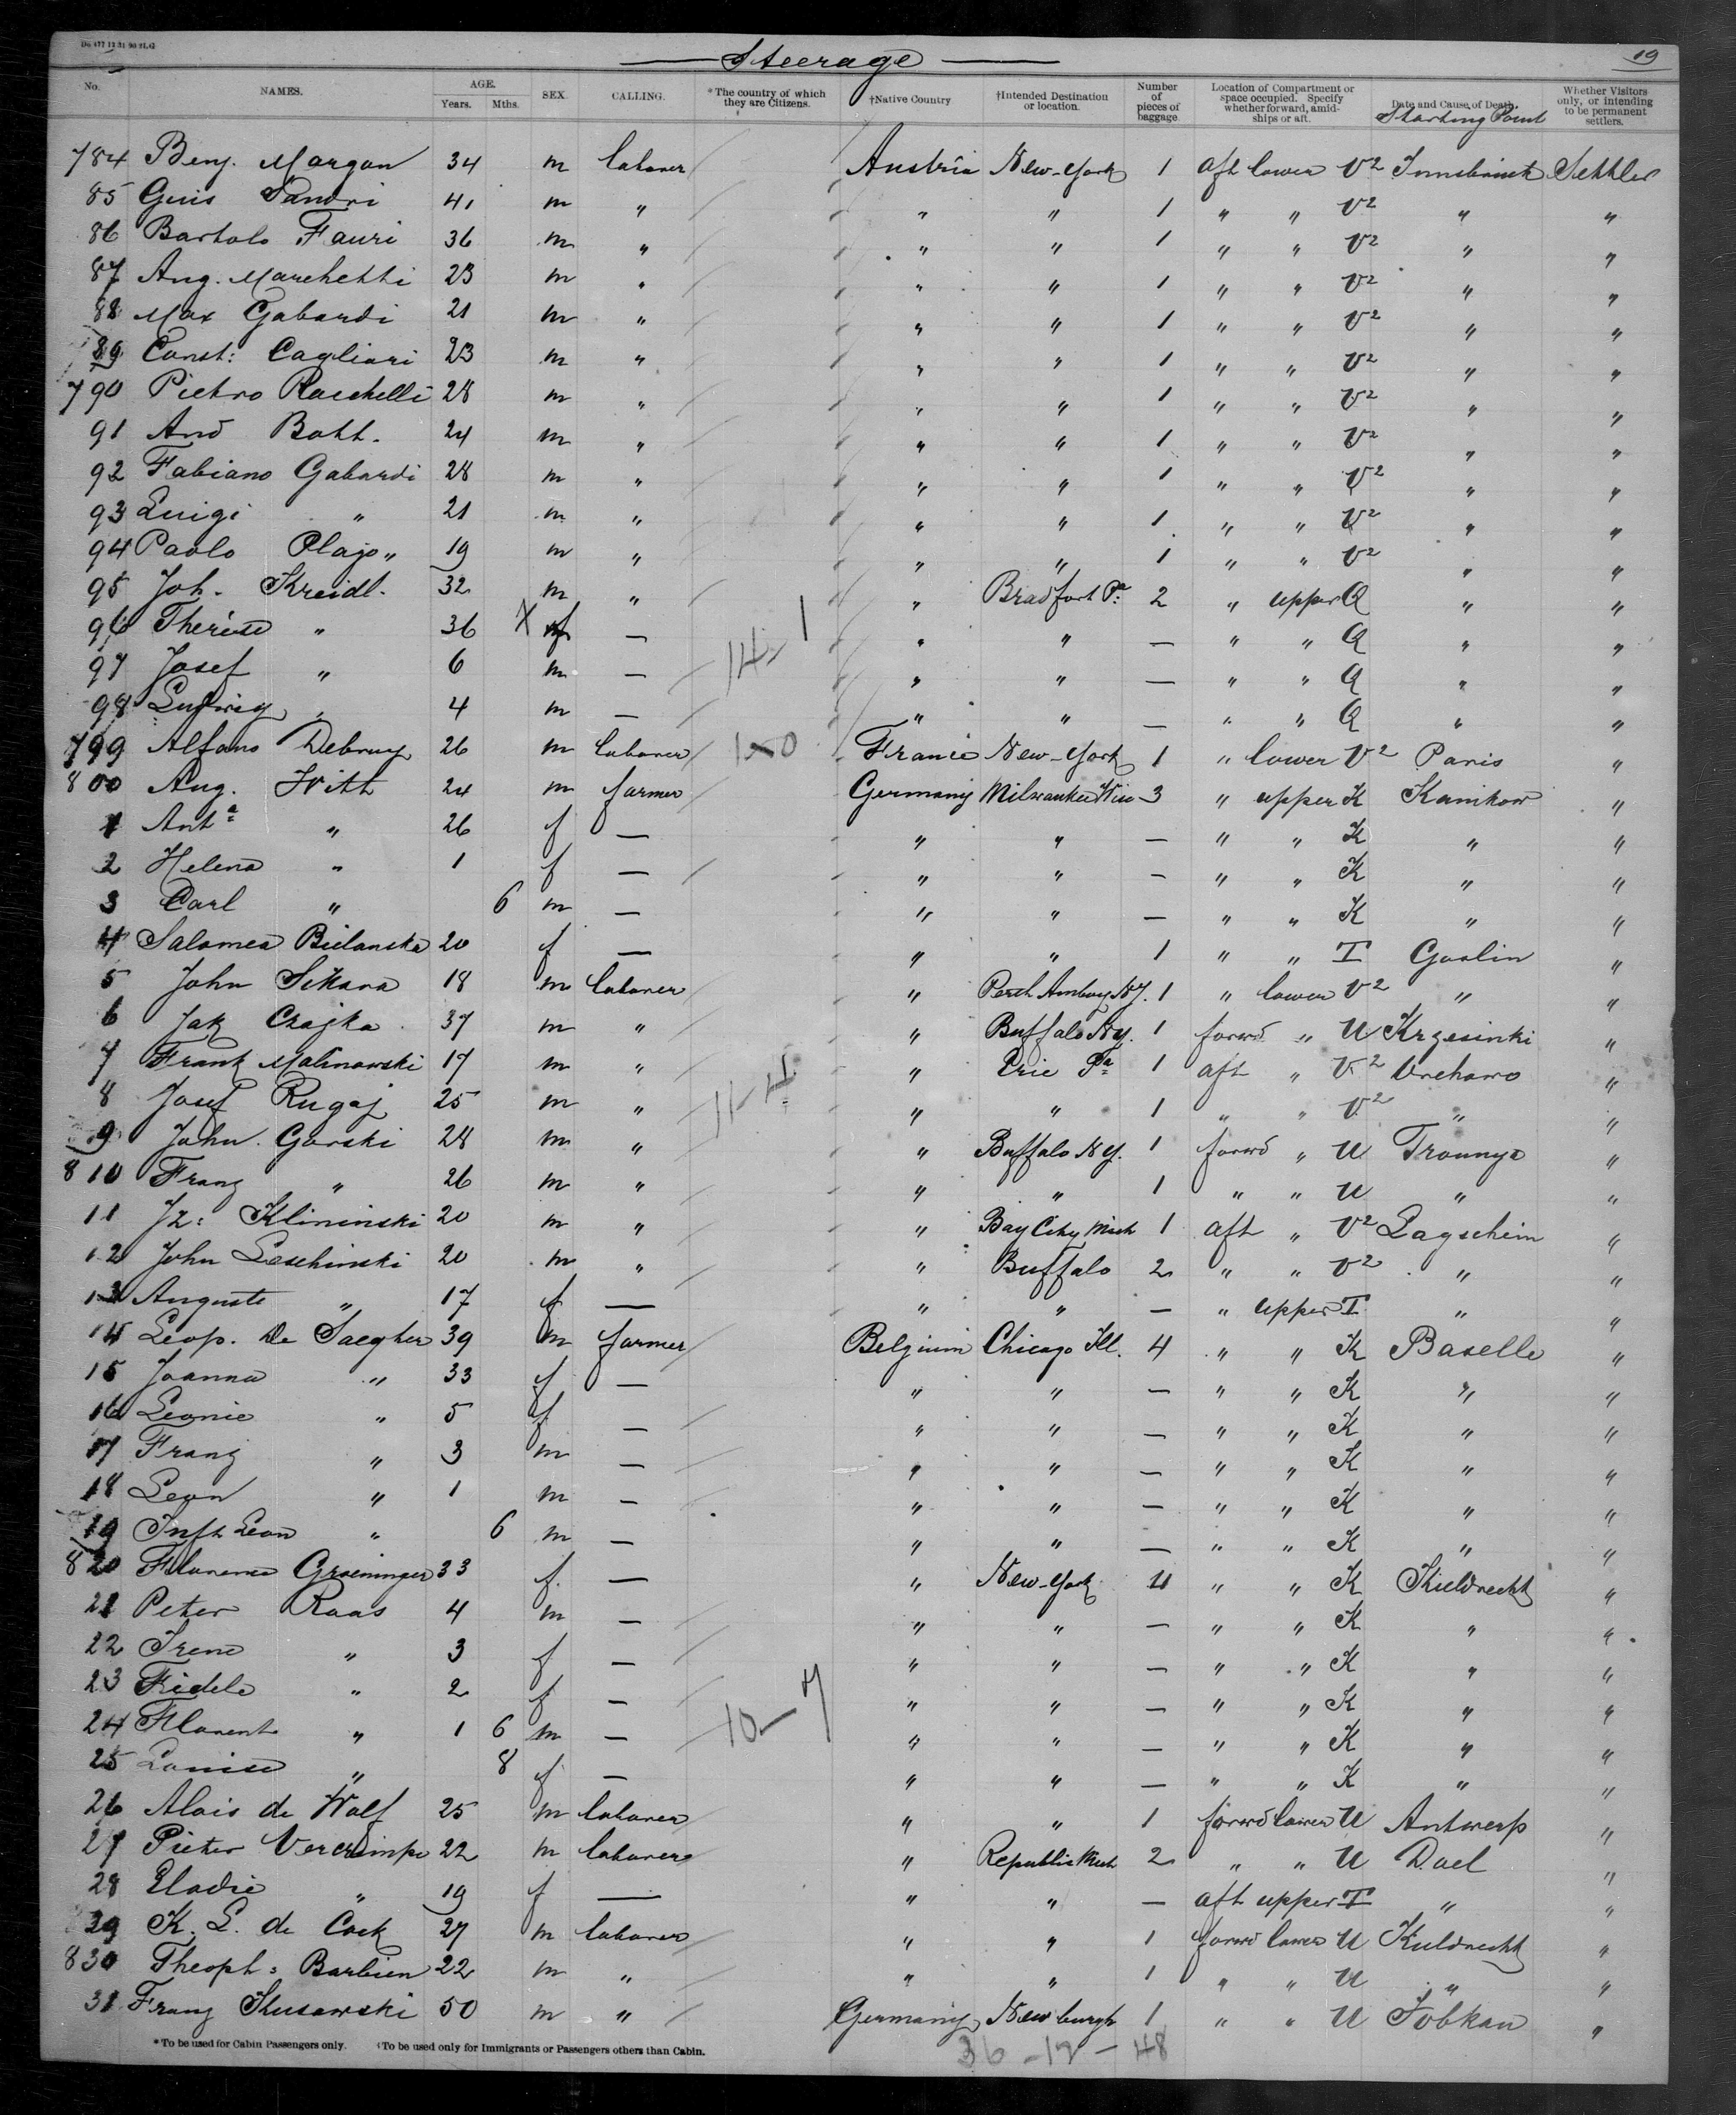 Do 477 12 31 90 2LG
Steerage
19
No. NAMES. AGE. Years. Mths. SEX. CALLING. *The country of which they are Citizens. †Native Country †Intended Destination or location. Number of pieces of baggage Location of Compartment or space occupied. Specify whether forward, amidships or aft. Date and Cause of Death. Starting Point Whether Visitors only, or intending to be permanent settlers.
784 Benj. Morgan 34 m laborer Austria New-York 1 aft lower V2 Innsbruck Settler
85 Guis Sandri 41 m " " " 1 " " V2 " "
86 Bartolo Fauri 36 m " " " 1 " " V2 " "
87 Ang. Marchetti 23 m " " " 1 " " V2 " "
88 Max Gabardi 21 m " " " 1 " " V2 " "
89 Const: Cagliari 23 m " " " 1 " " V2 " "
790 Pietro Raschelli 28 m " " " 1 " " V2 " "
91 And Bott. 24 m " " " 1 " " V2 " "
92 Fabiano Gabardi 28 m " " " 1 " " V2 " "
93 Luigi " 21 m " " " 1 " " V2 " "
94 Paolo " 19 m " " " 1 " " V2 " "
95 Joh. Kreidl. 32 m " " Bradfort Pa: 2 " upper Q " "
96 Therese " 36 X f — " " — " " Q " "
97 Josef " 6 m — 14-1 " " — " " Q " "
98 Ludwig " 4 m — " " — " " Q " "
799 Alfons Debruy 26 m laborer 1-0 France New-York 1 " lower V2 Paris "
800 Aug. Witt 24 m farmer Germany Milwaukee Wis 3 " upper K Kamikow "
1 Anta " 26 f — " " — " " K " "
2 Helena " 1 f — " " — " " K " "
3 Carl " 6 m — " " — " " K " "
4 Salomea Bielanska 20 f — " " 1 " " I Goslin "
5 John Sikara 18 m laborer " Perth Amboy NJ. 1 " lower V2 " "
6 Jak Czajka 37 m " " Buffalo Ny. 1 forwd " U Krzesinki "
7 Frank Malinowski 17 m " " Erie Pa 1 aft " V2 "
8 Josef Rugaj 25 m " 11-4 " " 1 " " V2 " "
9 John Gorski 28 m " " Buffalo Ny. 1 forwd " U "
810 Franz " 26 m " " " 1 " " U " "
11 Jz: Klininski 20 m " " Bay City Mich 1 aft " V2 Lagschein "
12 John Leschinski 20 m " " Buffalo 2 " " V2 " "
13 Auguste " 17 f — " " — " upper I " "
14 Leop. De Saegher 39 m farmer Belgium Chicago Ill. 4 " " K Baselle "
15 Joanna " 33 f — " " — " " K " "
16 Leonie " 5 f — " " — " " K " "
17 Franz " 3 m — " " — " " K " "
18 Leon " 1 m — " " — " " K " "
19 Inft Leon " 6 m — " " — " " K " "
820 Florence Groeninger 33 f — " New-York 4 " " K Kieldrecht "
21 Peter Raas 4 m — " " — " " K " "
22 Irene " 3 f — " " — " " K " "
23 Fidele " 2 f — " " — " " K " "
24 Florent " 1 6 m — 10-7 " " — " " K " "
25 Louise " 8 f — " " — " " K " "
26 Alois de Wolf 25 m laborer " " 1 forwd lower U Antwerp "
27 Pieter 22 m laborer " Republic Mich 2 " " U Doel "
28 Elodie " 19 f — " " — aft upper I " "
29 K. L. de Cock 27 m laborer " " 1 forwd lower U Kieldrecht "
830 Theoph: Barbien 22 m " " " 1 " " U " "
31 Franz Kusawski 50 m " Germany Newburgh 1 " " U "
*To be used for Cabin Passengers only. †To be used only for Immigrants or Passengers others than Cabin.
36 - 12 - 48